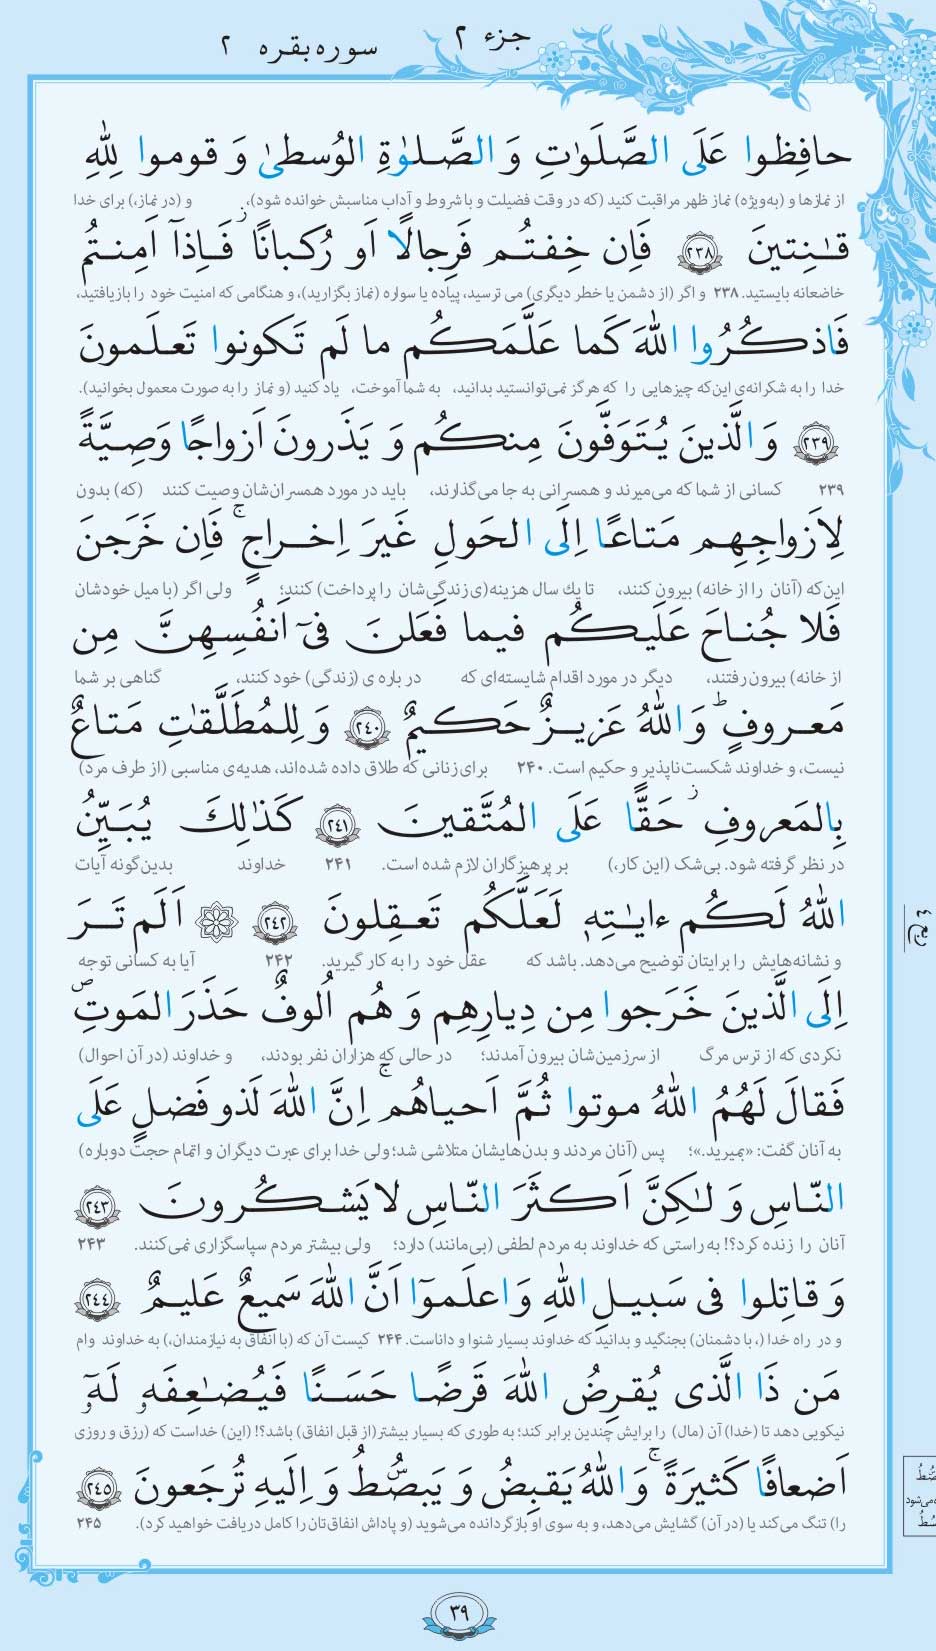 جزء ۲
سوره بقره ۲
حافِظوا عَلَى الصَّلَوٰتِ وَ الصَّلوٰةِ الوُسطىٰ وَ قوموا لِلّٰهِ
از نمازها و (به‌ویژه) نماز ظهر مراقبت کنید (که در وقت فضیلت و با شروط و آداب مناسبش خوانده شود)، و (در نماز،) برای خدا
قـٰنِتينَ ﴿٢٣٨﴾ فَاِن خِفتُم فَرِجالًا اَو رُكبانًا ۖ فَاِذآ اَمِنتُم
خاضعانه بایستید. ۲۳۸ و اگر (از دشمن یا خطر دیگری) می ترسید، پیاده یا سواره (نماز بگزارید)، و هنگامی که امنیت خود را بازیافتید،
فَاذكُرُوا اللّٰهَ كَما عَلَّمَكُم ما لَم تَكونوا تَعلَمونَ
خدا را به شکرانه‌ی این‌که چیزهایی را که هرگز نمی‌توانستید بدانید، به شما آموخت، یاد کنید (و نماز را به صورت معمول بخوانید).
﴿٢٣٩﴾ وَ الَّذينَ يُتَوَفَّونَ مِنكُم وَ يَذَرونَ اَزواجًا وَصِيَّةً
۲۳۹ کسانی از شما که می‌میرند و همسرانی به جا می‌گذارند، باید در مورد همسران‌شان وصیت کنند (که) بدون
لِاَزواجِهِم مَتاعًا اِلَى الحَولِ غَيرَ اِخراجٍ ۚ فَاِن خَرَجنَ
این‌که (آنان را از خانه) بیرون کنند، تا یك سال هزینه(ی زندگی‌شان را پرداخت) کنند؛ ولی اگر (با میل خودشان
فَلا جُناحَ عَلَيكُم فيما فَعَلنَ فىٓ اَنفُسِهِنَّ مِن
از خانه) بیرون رفتند، دیگر در مورد اقدام شایسته‌ای که در باره ی (زندگی) خود کنند، گناهی بر شما
مَعروفٍ ۗ وَ اللّٰهُ عَزيزٌ حَكيمٌ ﴿٢٤٠﴾ وَ لِلمُطَلَّقٰتِ مَتاعٌ
نیست، و خداوند شکست‌ناپذیر و حکیم است. ۲۴۰ برای زنانی که طلاق داده شده‌اند، هدیه‌ی مناسبی (از طرف مرد)
بِالمَعروفِ ۖ حَقًّا عَلَى المُتَّقينَ ﴿٢٤١﴾ كَذٰلِكَ يُبَيِّنُ
در نظر گرفته شود. بی‌شک (این کار،) بر پرهیزگاران لازم شده است. ۲۴۱ خداوند بدین‌گونه آیات
اللّٰهُ لَكُم ءايـٰتِهٖ لَعَلَّكُم تَعقِلونَ ﴿٢٤٢﴾ ۞ اَلَم تَرَ
و نشانه‌هایش را برایتان توضیح می‌دهد. باشد که عقل خود را به کار گیرید. ۲۴۲ آیا به کسانی توجه
اِلَى الَّذينَ خَرَجوا مِن دِيارِهِم وَ هُم اُلوفٌ حَذَرَ المَوتِ
نکردی که از ترس مرگ از سرزمین‌شان بیرون آمدند؛ در حالی که هزاران نفر بودند، و خداوند (در آن احوال)
فَقالَ لَهُمُ اللّٰهُ موتوا ثُمَّ اَحياهُم ۚ اِنَّ اللّٰهَ لَذو فَضلٍ عَلَى
به آنان گفت: «بمیرید.»؛ پس (آنان مردند و بدن‌هایشان متلاشی شد؛ ولی خدا برای عبرت دیگران و اتمام حجت دوباره)
النّاسِ وَ لـٰكِنَّ اَكثَرَ النّاسِ لا يَشكُرونَ ﴿٢٤٣﴾
آنان را زنده کرد؟! به راستی که خداوند به مردم لطفی (بی‌مانند) دارد؛ ولی بیشتر مردم سپاسگزاری نمی‌کنند. ۲۴۳
وَ قاتِلوا فى سَبيلِ اللّٰهِ وَ اعلَموٓا اَنَّ اللّٰهَ سَميعٌ عَليمٌ ﴿٢٤٤﴾
و در راه خدا (، با دشمنان) بجنگید و بدانید که خداوند بسیار شنوا و داناست. ۲۴۴ کیست آن که (با انفاق به نیازمندان،) به خداوند وام
مَن ذَا الَّذى يُقرِضُ اللّٰهَ قَرضًا حَسَنًا فَيُضـٰعِفَهٗ لَهٗٓ
نیکویی دهد تا (خدا) آن (مال) را برایش چندین برابر کند؛ به طوری که بسیار بیشتر (از قبل انفاق) باشد؟! (این) خداست که (رزق و روزی
اَضعافًا كَثيرَةً ۚ وَ اللّٰهُ يَقبِضُ وَ يَبصُۜطُ وَ اِلَيهِ تُرجَعونَ ﴿٢٤٥﴾
را) تنگ می‌کند یا (در آن) گشایش می‌دهد، و به سوی او بازگردانده می‌شوید (و پاداش انفاق‌تان را کامل دریافت خواهید کرد). ۲۴۵
ربع ٤
۳۹